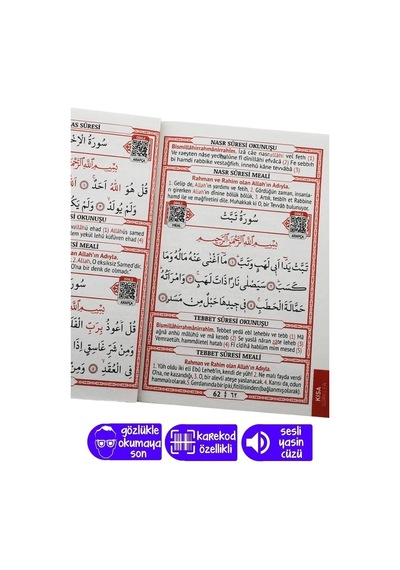 AS SÛRESİ
سُورَةُ الْاِخْ
ARAPÇA
بِسْمِ اللّٰهِ الرَّحْمٰنِ
قُلْ هُوَ اللّٰهُ اَحَدٌ
وَلَمْ يُولَدْ وَلَمْ يَكُ
SI OKUNUŞU
ehad (1) Allâhüs samed
lem yekûl lehû küfüven ehad (4)
MEALİ
lan Allah'ın Adıyla.
2. Allah, O eksiksiz Samed'dir.
O'na biz denk de olmadı."
ARAPÇA
بِسْمِ اللّٰهِ الرَّحْمٰنِ
قُلْ اَعُوذُ بِرَبِّ الْ
وَمِنْ شَرِّ غَاسِقٍ اِذَا
فِي الْعُقَدِ وَمِنْ
NASR SÛRESİ OKUNUŞU
Bismillâhirrahmânirrahîm. İzâ câe nasrullâhi vel feth (1)
Ve raeyten nâse yedhulûne fî dînillâhi efvâcâ (2) Fe sebbih
bi hamdi rabbike vestağfirh, innehû kâne tevvâbâ (3)
NASR SÛRESİ MEALİ
Rahman ve Rahim olan Allah'ın Adıyla.
1. Gelip de, Allah'ın yardımı ve fetih, 2. Gördüğün zaman, insanla-
rı girerken Allah'ın dînine bölük bölük. 3. Artık, tesbih et Rabbine
hamd ile ve mağfiretini dile. Muhakkak ki O, bir Tevvâb bulunuyor.
MEAL
سُورَةُ تَبَّتْ
ARAPÇA
بِسْمِ اللّٰهِ الرَّحْمٰنِ الرَّحِيمِ
تَبَّتْ يَدَٓا اَبِي لَهَبٍ وَتَبَّ مَٓا اَغْنٰى عَنْهُ مَالُهُ وَمَا
كَسَبَ سَيَصْلٰى نَارًا ذَاتَ لَهَبٍ وَامْرَاَتُهُ
حَمَّالَةَ الْحَطَبِ فِي جِيدِهَا حَبْلٌ مِنْ مَسَدٍ
TEBBET SÛRESİ OKUNUŞU
Bismillâhirrahmânirrahîm. Tebbet yedâ ebî lehebiv ve tebb (1) Mâ
ağnâ anhü mâlühû ve mâ keseb (2) Se yaslâ nâran zâte leheb (3)
Vemraetüh, hammâletel hatab (4) Fî cîdihâ hablüm mim mesed (5)
TEBBET SÛRESİ MEALİ
Rahman ve Rahim olan Allah'ın Adıyla.
1. Yüh oldu iki eli Ebû Leheb'in, kendi de yüh! 2. Ne malı fayda verdi
O'na, ne kazandığı, 3. O, bir alevli ateşe yaslanacak. 4. Karısı da, odun
hammalı olarak. 5. Gerdanında bir ipki, finitilisinden(bağlanmış olarak)
62 ٦٢
KISA
gözlükle
okumaya
son
karekod
özellikli
sesli
yasin
cüzü